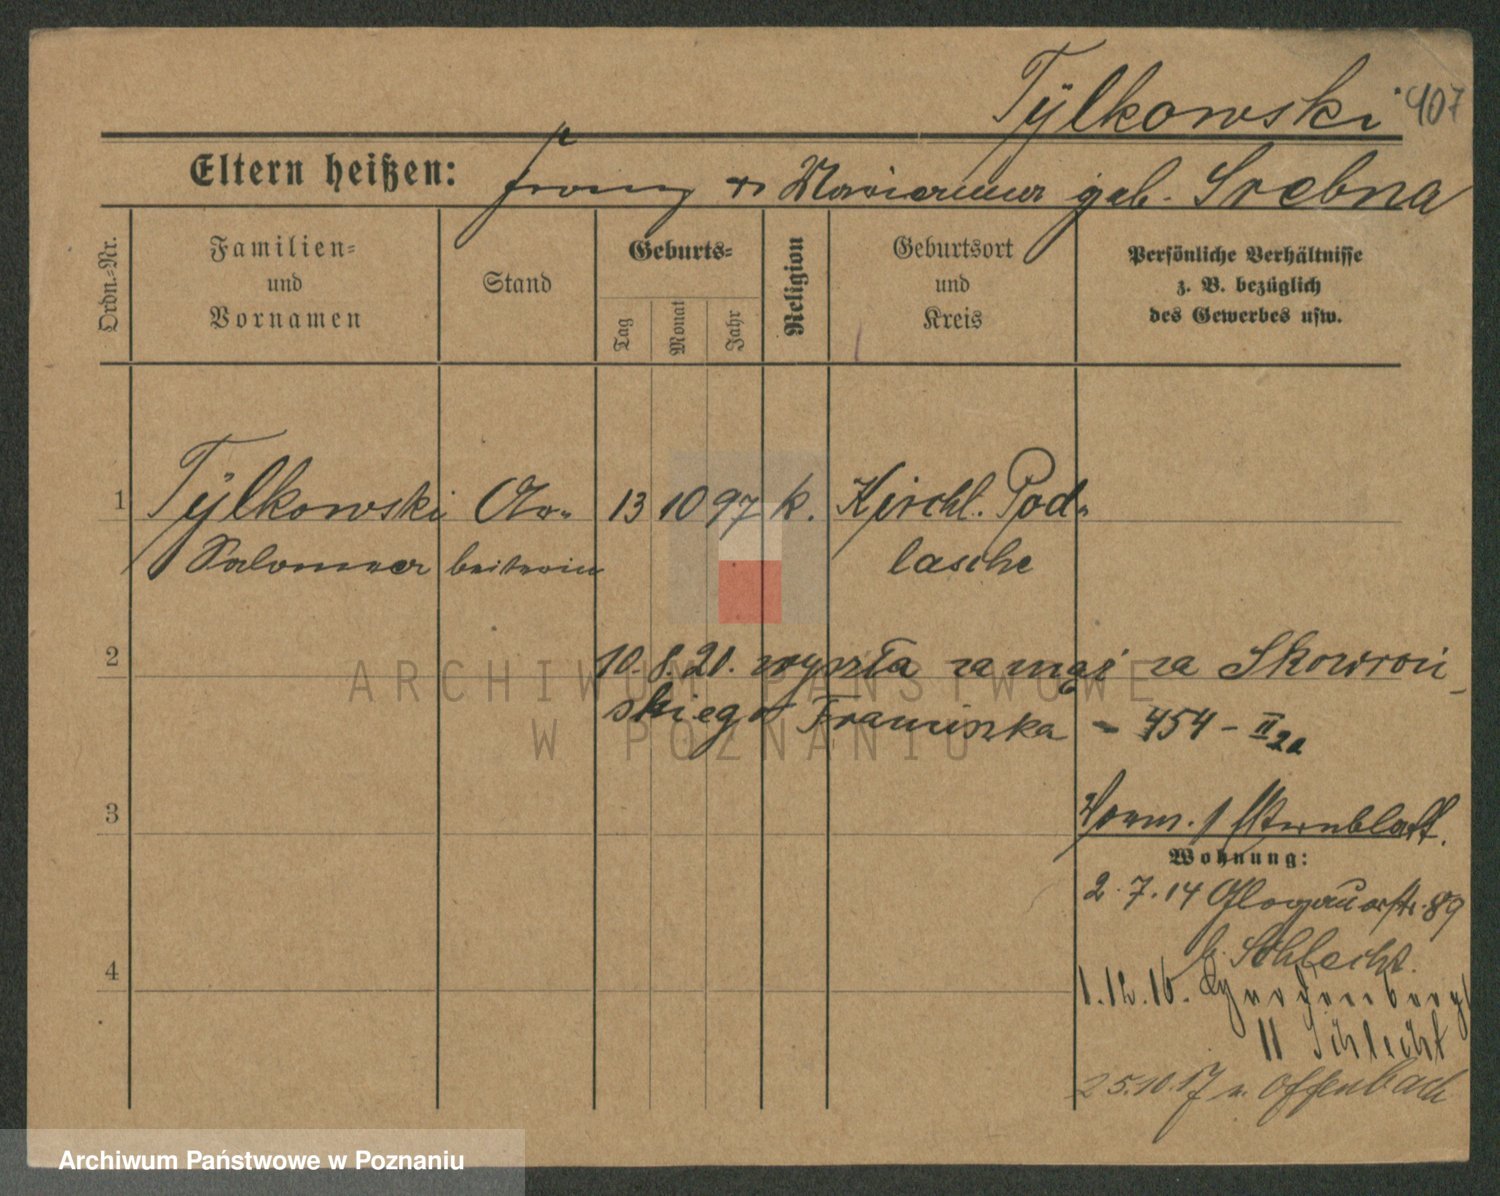 Tÿlkowski 407
Eltern heißen: Franz u Marianna geb. Srebna
Ordn.-Nr.
Familien-
und
Vornamen
Stand
Geburts-
Tag
Monat
Jahr
Religion
Geburtsort
und
Kreis
Persönliche Verhältnisse
z. B. bezüglich
des Gewerbes usw.
1 Tÿlkowski Ar- 13 10 97 k. Kirchl. Pod-
Salomea beiterin lasche
2 10.8.21. wyszła zamąż za Skowroń-
skiego Franciszka - 454 - II
3
Sternblatt.
Wohnung:
2.7.14 Glogauerstr. 89
b. Schlecht.
4
1.12.16.
II Schlecht
25.10.17 n. Offenbach
ARCHIWUM PAŃSTWOWE
W POZNANIU
Archiwum Państwowe w Poznaniu